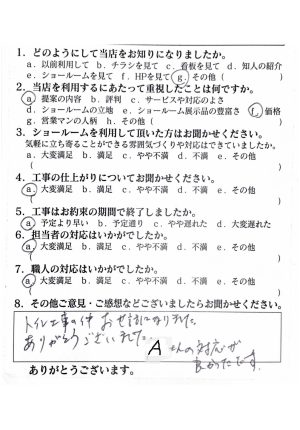 1．どのようにして当店をお知りになりましたか。
a．以前利用して b．チラシを見て c．看板を見て d．知人の紹介
e．ショールームを見て f．HPを見て g．その他（ ）
2．当店を利用するにあたって重視したことは何ですか。
a．提案の内容 b．評判 c．サービスや対応のよさ
d．ショールームの立地 e．ショールーム展示品の豊富さ f．価格
g．営業マンの人柄 h．その他（ ）
3．ショールームを利用して頂いた方はお聞かせください。
気軽に立ち寄ることができる雰囲気づくりや対応はできていましたか。
a．大変満足 b．満足 c．やや不満 d．不満 e．その他
（ ）
4．工事の仕上がりについてお聞かせください。
a．大変満足 b．満足 c．やや不満 d．不満 e．その他
（ ）
5．工事はお約束の期間で終了しましたか。
a．予定より早い b．予定通り c．やや遅れた d．大変遅れた
6．担当者の対応はいかがでしたか。
a．大変満足 b．満足 c．やや不満 d．不満 e．その他
（ ）
7．職人の対応はいかがでしたか。
a．大変満足 b．満足 c．やや不満 d．不満 e．その他
（ ）
8．その他ご意見・ご感想などございましたらお聞かせください。
トイレ工事の件 お世話になりました。
ありがとうございました。
Aさんの対応が
良かったです。
ありがとうございます。